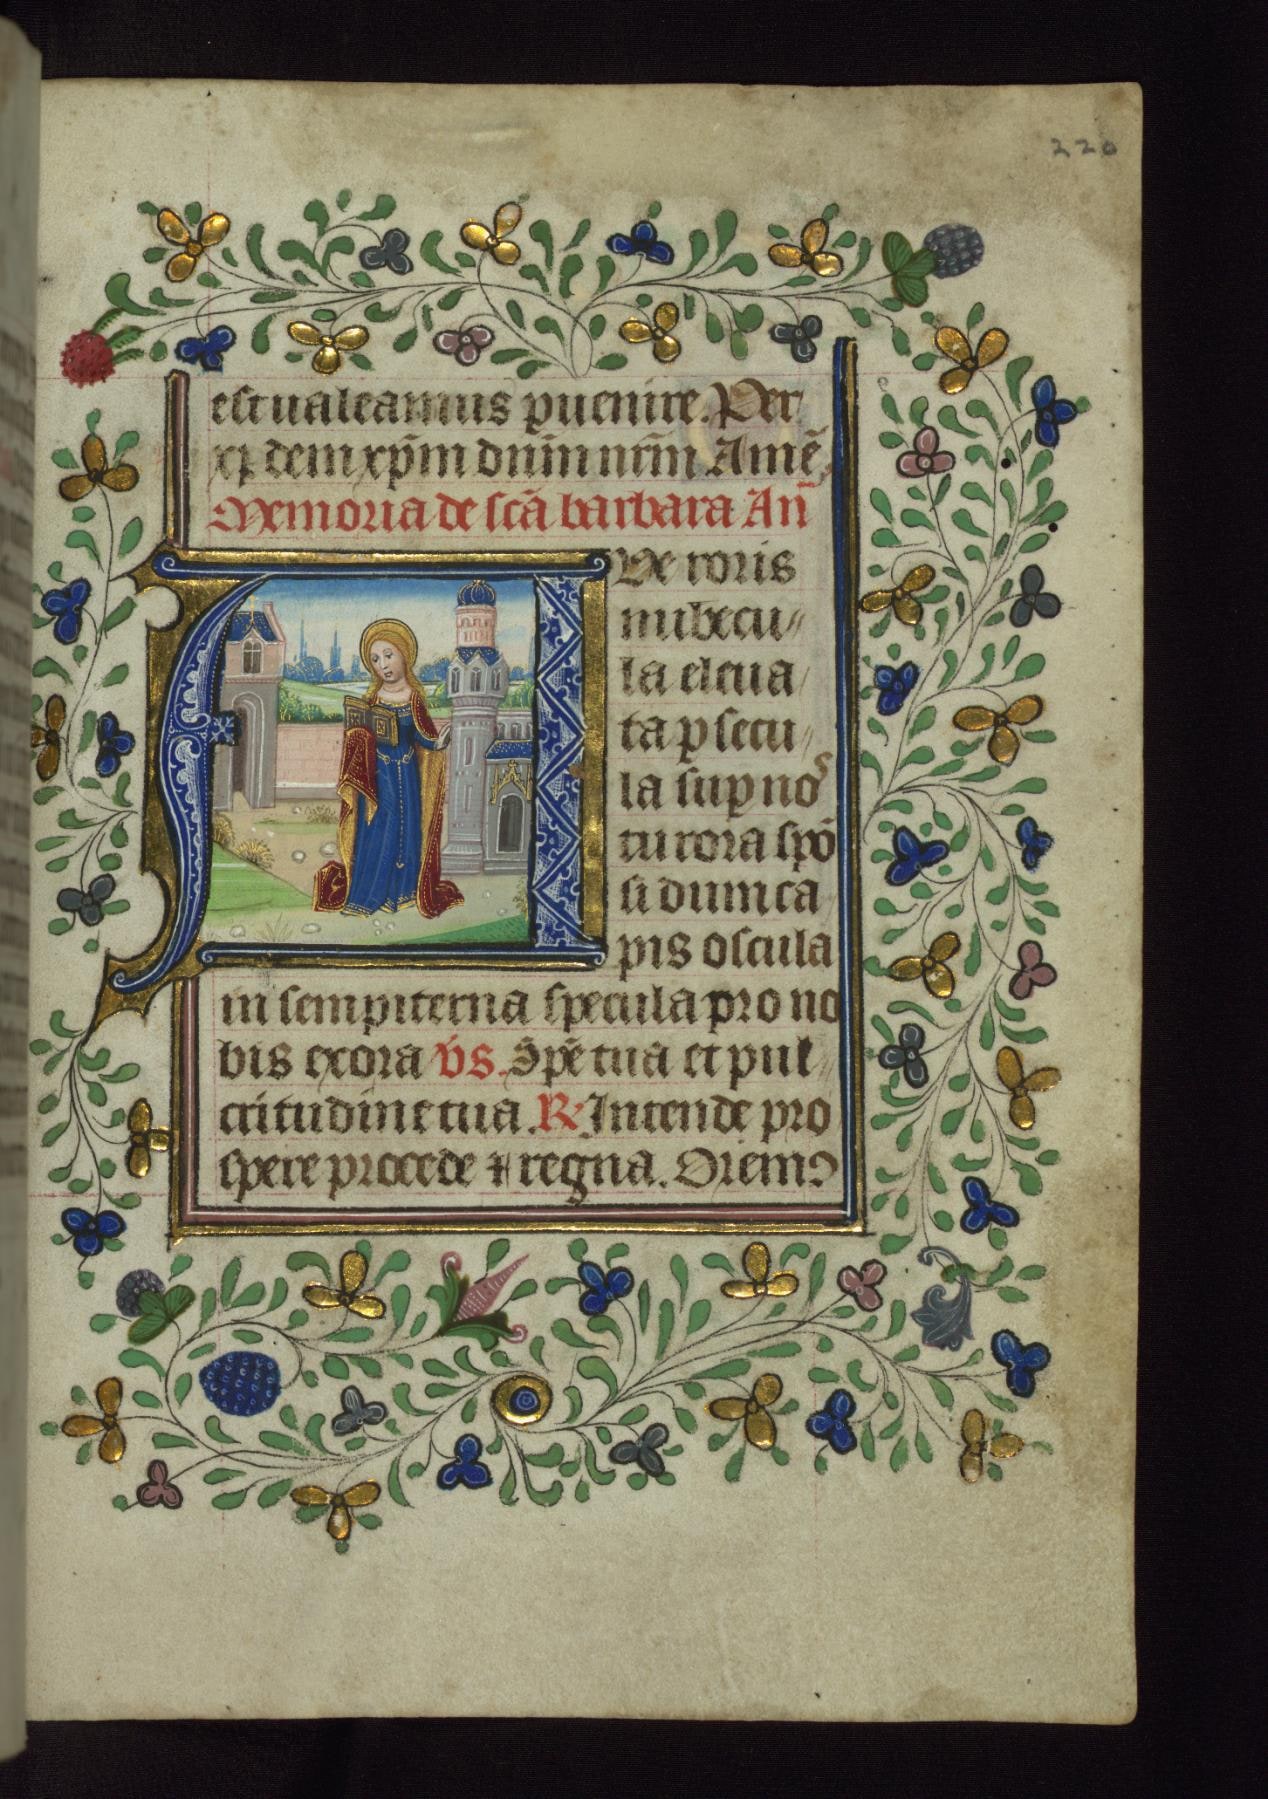 220
est ualeamus ꝑuenire. Per
xp̄ dem xp̄m dn̄m nr̄m Amē
Memoria de scā barbara An̄
AVe roris
nubecu〃
la eleua
ta ꝑ secu〃
la suꝑ noˢ
tu rora spō
si dum ca
pis oscula
in sempiterna specula pro no
bis exora v̄s. Spē tua et pul〃
critudine tua. R. Intende pro
spere procede ⁊ regna. Oremꝰ